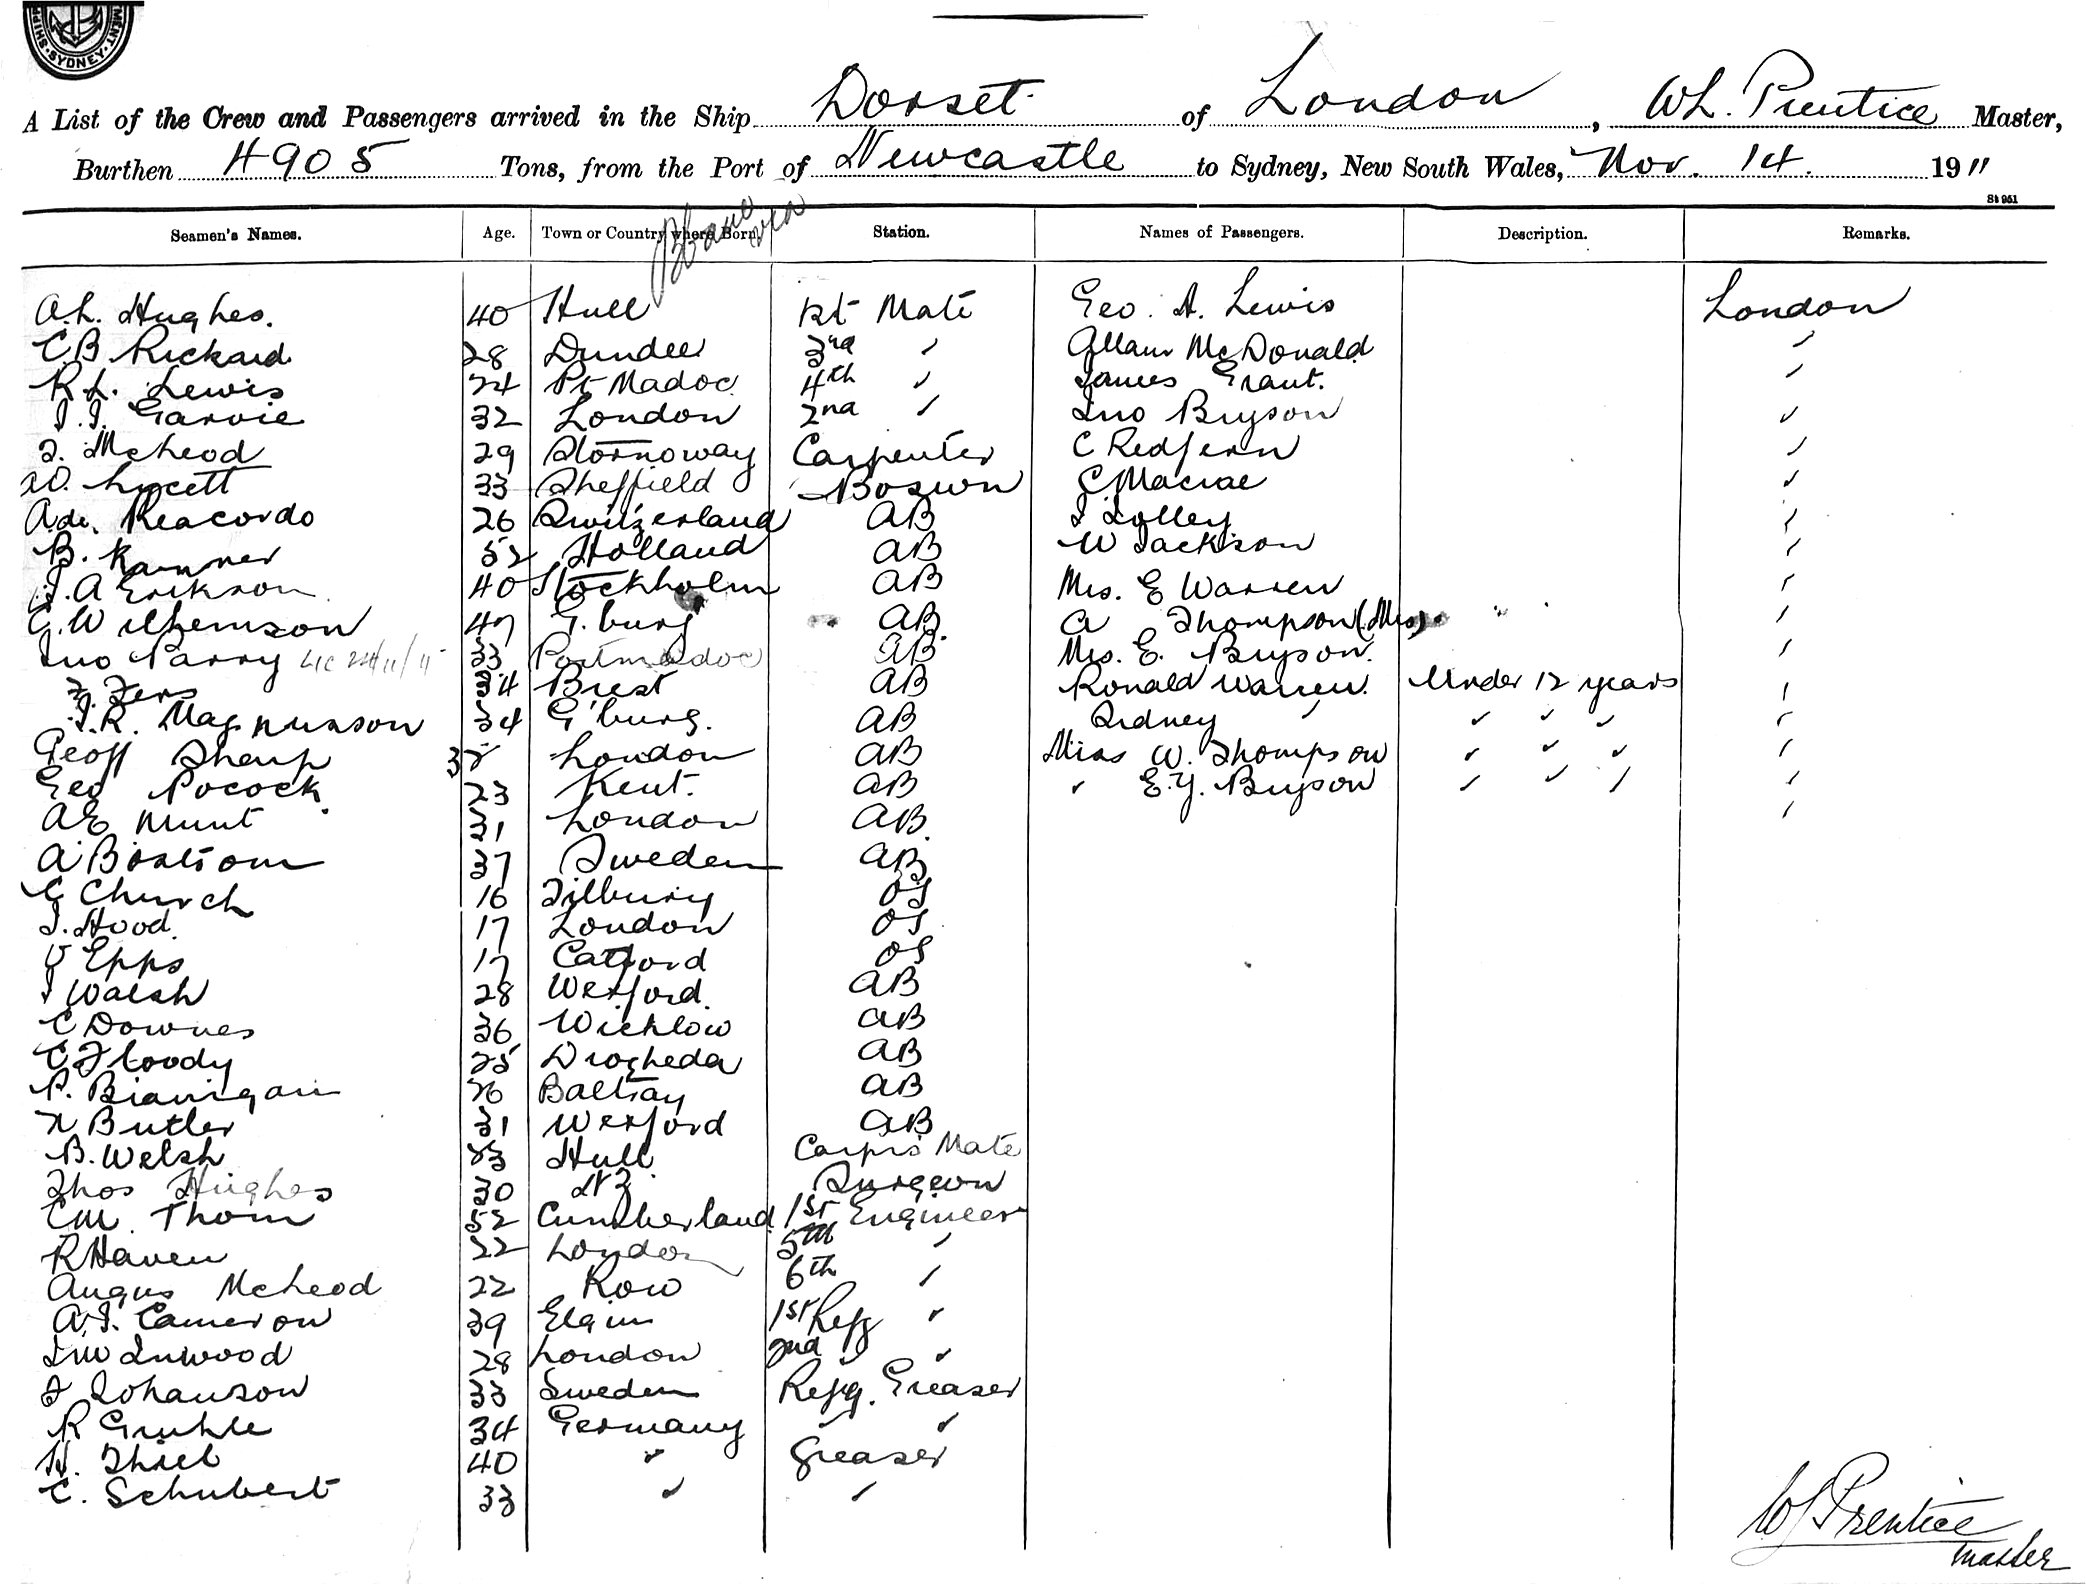 SHIP MENT. SYDNEY
A List of the Crew and Passengers arrived in the Ship Dorset of London, W.L. Prentice Master,
Burthen 4905 Tons, from the Port of Newcastle to Sydney, New South Wales, Nov. 14. 1911
St 951
Seamen's Names. Age. Town or Country where Born Station. Names of Passengers. Description. Remarks.
A.L. Hughes. 40 Hull 1st Mate Geo. A. Lewis London
C.B Rickard 28 Dundee 3rd " Allan McDonald "
R.L. Lewis 24 Pt Madoc 4th " James Grant. "
J.J. Garvie 32 London 2nd " Jno Bryson "
J. McLeod 29 Stornoway Carpenter C Redfern "
Lycett 33 Sheffield Boswn C. Macrae "
A. de. Reacordo 26 Switzerland AB J Jolley "
B. Kammer 52 Holland AB W Jackson "
J.A Erikson 40 Stockholm AB Mrs. E Warren "
C. Wilhemson 47 G.burg AB A Thompson (Mrs) " "
Jno Parry 33 Portmadoc AB Mrs. E. Bryson. "
34 Brest AB Ronald Warren. Under 12 years "
J.R. Magnusson 34 G'burg. AB Sidney " " " " "
Geoff Sharp 35 London AB Miss W. Thompson " " " "
Geo Pocock. 23 Kent. AB " E.Y. Bryson " " " "
AE Munt 31 London AB "
A Bostrom 37 Sweden AB
C Church 16 Tilbury OS
J. Hood. 17 London OS
V Epps 17 Catford OS
J Walsh 28 Wexford. AB
C Downes 36 Wicklow AB
C Floody 25 Drogheda AB
P. Branigan 26 Baltray AB
N Butler 31 Wexford AB
B. Welsh 53 Hull Carprs Mate
Thos Hughes 30 NZ Surgeon
CM. Thom 52 Cumberland 1st Engineer
R Haven 22 London 5th "
Angus McLeod 22 Row 6th "
A.J. Cameron 39 Elgin 1st Refg "
J W Inwood 28 London 2nd " "
J Johanson 33 Sweden Refg. Greaser
R Gruhle 34 Germany " "
H. Thiel 40 " Greaser
C. Schubert 33 " "
W L Prentice
Master